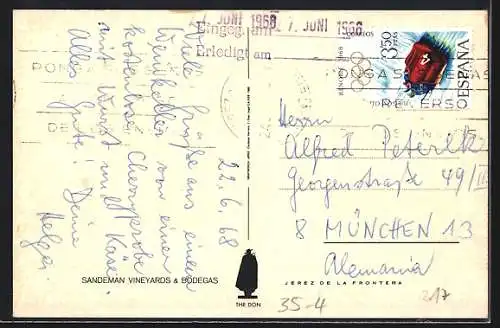 7. JUNI 1968
7. JUNI 1968
Eingeg. am
Erledigt am
CORREOS
3,50
PTAS
ESPAÑA
PON
DE
REVERSO
22.6.68
Viele Grüße aus einem
Weinkeller von einer
kostenlosen Cherryprobe
mit Wurst und Käse.
Alles Gute! Deine
Helga.
Herrn
Alfred Peterlik
Georgenstraße 49/II
8 MÜNCHEN 13
Alemania
SANDEMAN VINEYARDS & BODEGAS
THE DON
JEREZ DE LA FRONTERA
35-4
217